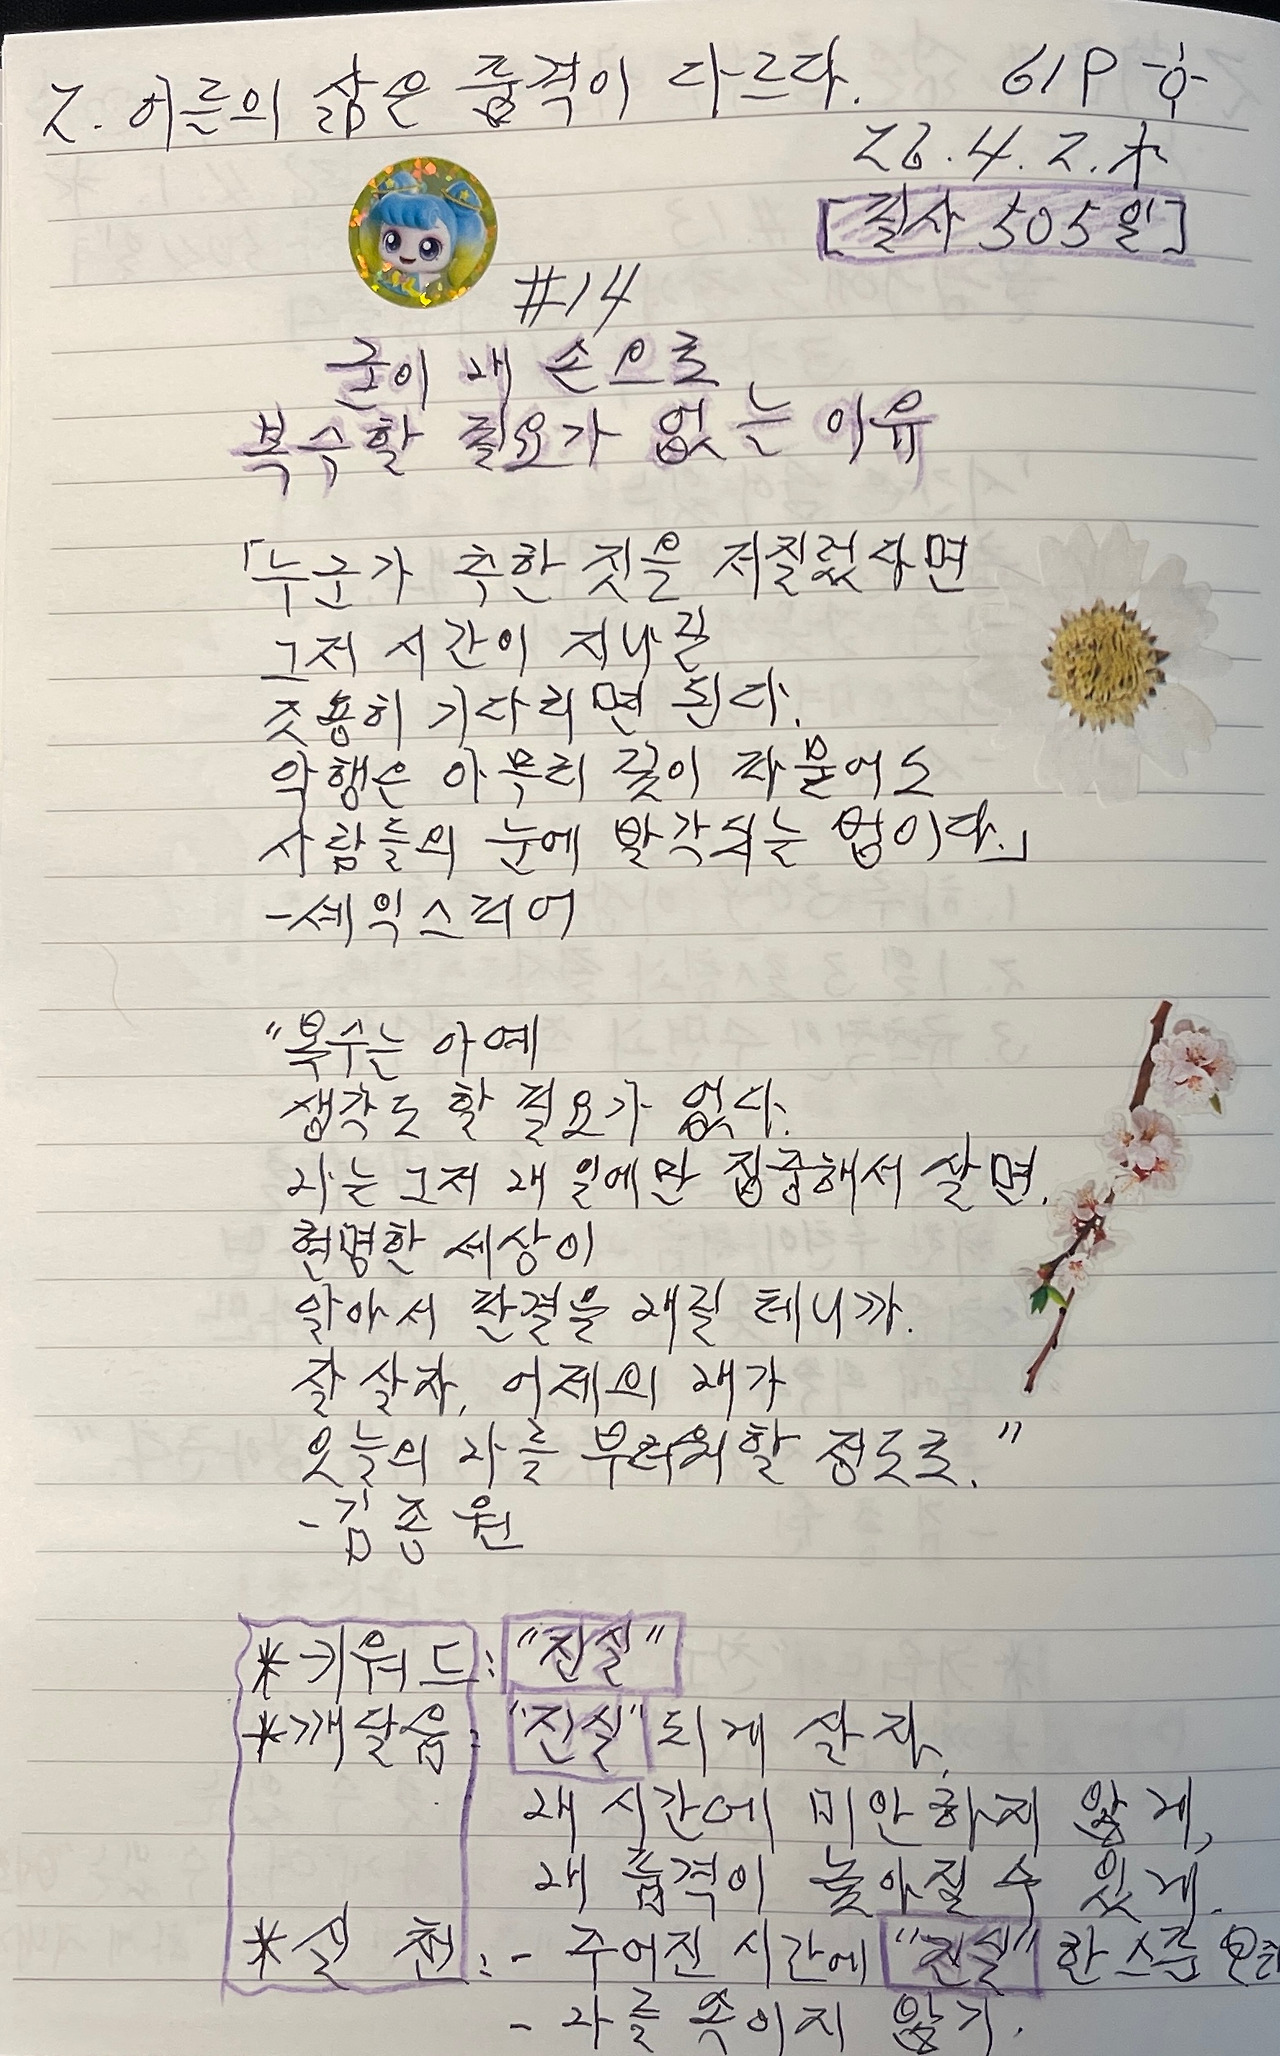 2. 어른의 삶은 품격이 다르다. 61P
26.4.2.木
[필사 505일]
#14
굳이 내 손으로
복수할 필요가 없는 이유
「누군가 추한 짓을 저질렀다면
그저 시간이 지나길
조용히 기다리면 된다.
악행은 아무리 깊이 파묻어도
사람들의 눈에 발각되는 법이다.」
-셰익스피어
"복수는 아예
생각도 할 필요가 없다.
나는 그저 내 일에만 집중해서 살면.
현명한 세상이
알아서 판결을 내릴 테니까.
잘 살자, 어제의 내가
오늘의 나를 부러워할 정도로."
-김종원
*키워드: "진실"
*깨달음: "진실"되게 살자.
내 시간에 미안하지 않게,
내 품격이 높아질 수 있게.
*실 천: - 주어진 시간에 "진실"한 스준
- 나를 속이지 않기.